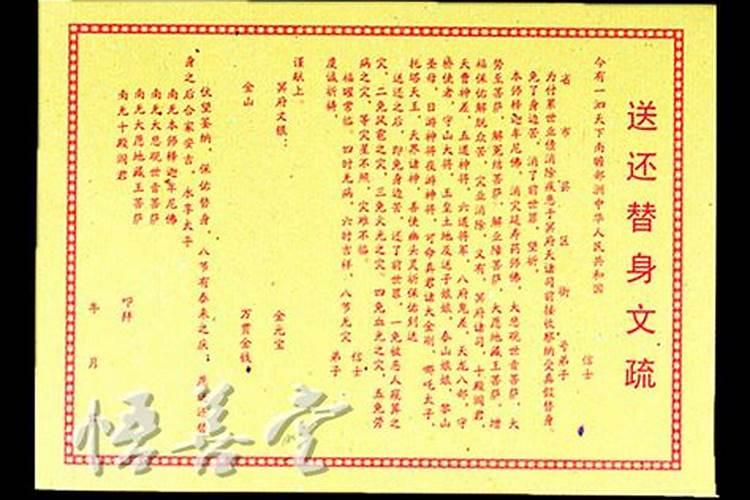 送还替身文疏
今有一泗天下南赡部洲中华人民共和国
省 市 县 区 街 号弟子 信士
为付累世业债消除疾患于冥府天诸司前接收察纳受真假替身、
免了身边苦、消了前世罪、望祈、
本师释迦牟尼佛、消灾延寿药师佛、大悲观世音菩萨、大
势至菩萨、解冤结菩萨、解业障菩萨、大愿地藏王菩萨、增
福保佑解脱众苦、灾业消除、又有、冥府诸司、十殿阎君、
天曹神差、五道神将、六道将军、八府鬼差、天龙八部、守
桥使者、守山大将、玉皇土地及送子娘娘、泰山娘娘、黎山
圣母、日游神将夜游神将、司命真君诸大金刚、哪吒太子、
托塔天王、天界诸神、善使幽头灵祈保佑到送
送还之后、即免身边苦、还了前世罪、一免被恶人碇算之
灾、二免风雹之灾、三免火光之灾、四免血光之灾、五免劳
病之灾、等灾星不照、灾难不临、
福曜常临、四时无病、六时吉祥、八节无灾 信士
虔诚祈祷、 弟子
谨献上、
冥府文银： 金元宝
金山 万贯金钱
伏望鉴纳、保佑替身、八节有泰来之庆；还替
身之后合家安吉、永享太子
南无本师释迦牟尼佛
南无大悲观世音菩萨
南无大愿地藏王菩萨
南无十殿阎君 叩拜
年 月
悟善堂